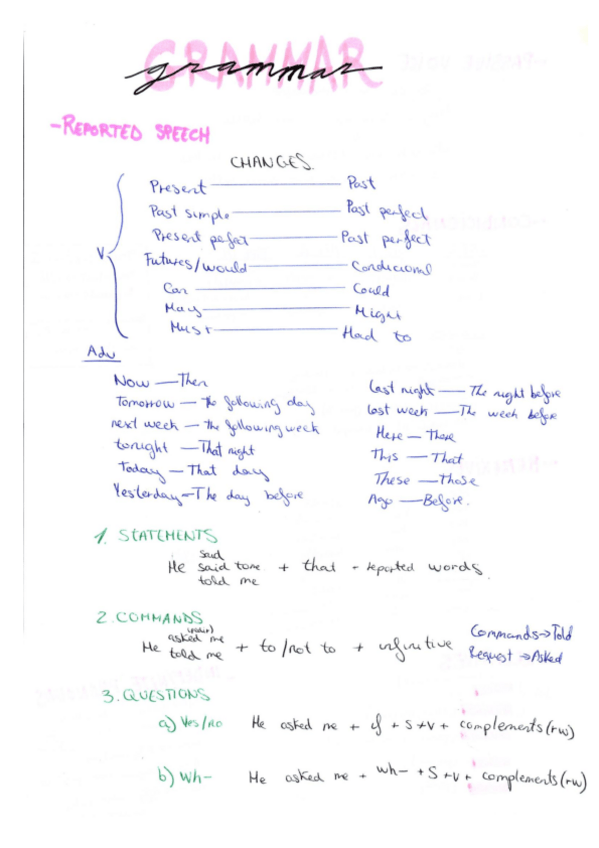 GRAMMAR
grammar
- REPORTED SPEECH
CHANGES
V
Present — Past
Past simple — Past perfect
Present pefect — Past perfect
Futures/would — Condicional
Can — Could
May — Might
Must — Had to
Adv
Now — Then
Tomorrow — the following day
next week — the following week
tonight — That night
Today — That day
Yesterday — The day before
last night — The night before
last week — The week before
Here — There
This — That
These — Those
Ago — Before.
1. STATEMENTS
said
He said to me + that - reported words.
told me
2. COMMANDS
asked me
He told me + to/not to + infinitive
Commands → Told
Request → Asked
3. QUESTIONS
a) Yes/no He asked me + if + S + V + complements (rw)
b) Wh- He asked me + wh- + S + V + complements (rw)